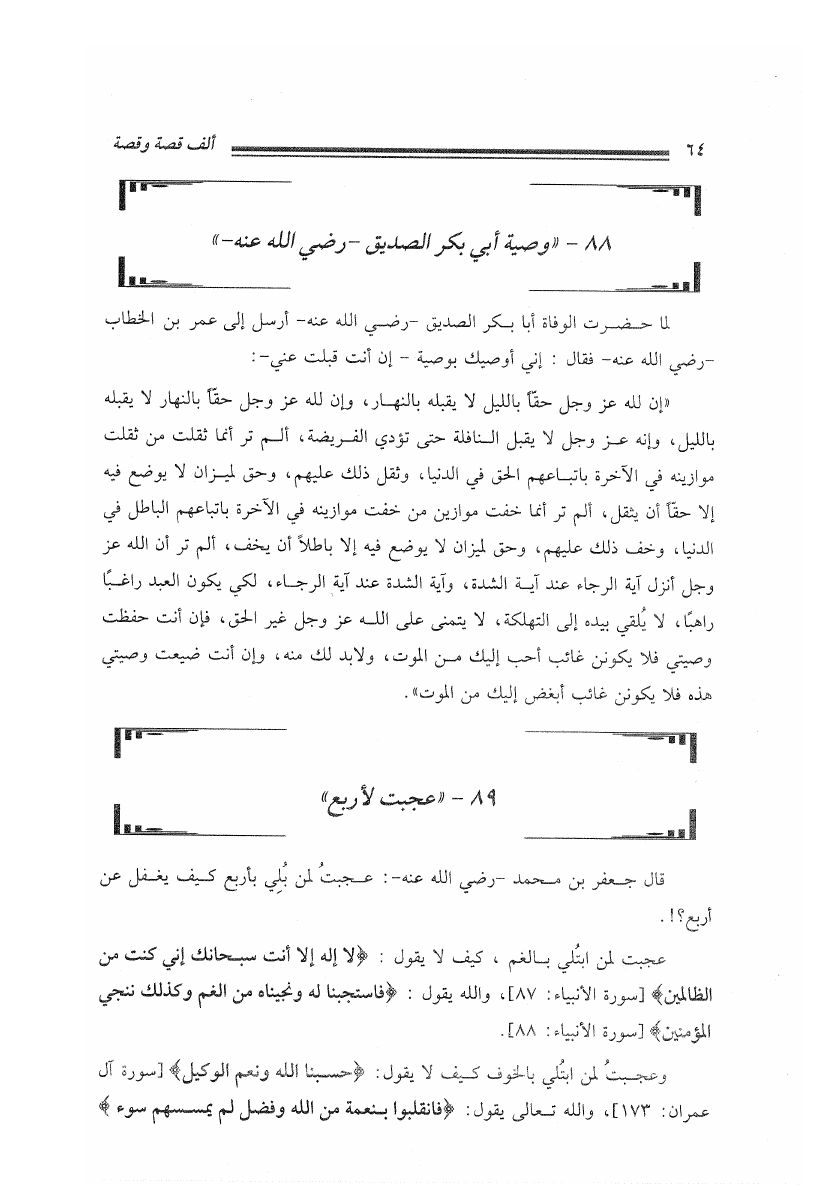 ٦٤ ألف قصة وقصة
٨٨ - «وصية أبي بكر الصديق -رضي الله عنه-»
لما حضرت الوفاة أبا بكر الصديق -رضي الله عنه- أرسل إلى عمر بن الخطاب
-رضي الله عنه- فقال : إني أوصيك بوصية - إن أنت قبلت عني-:
«إن لله عز وجل حقّاً بالليل لا يقبله بالنهار، وإن لله عز وجل حقاً بالنهار لا يقبله
بالليل، وإنه عز وجل لا يقبل النافلة حتى تؤدي الفريضة، ألم تر أنما ثقلت من ثقلت
موازينه في الآخرة باتباعهم الحق في الدنيا، وثقل ذلك عليهم، وحق لميزان لا يوضع فيه
إلا حقاً أن يثقل، ألم تر أنما خفت موازين من خفت موازينه في الآخرة باتباعهم الباطل في
الدنيا، وخف ذلك عليهم، وحق لميزان لا يوضع فيه إلا باطلاً أن يخف، ألم تر أن الله عز
وجل أنزل آية الرجاء عند آية الشدة، وآية الشدة عند آية الرجاء، لكي يكون العبد راغبًا
راهبًا، لا يُلقي بيده إلى التهلكة، لا يتمنى على الله عز وجل غير الحق، فإن أنت حفظت
وصيتي فلا يكونن غائب أحب إليك من الموت، ولابد لك منه، وإن أنت ضيعت وصيتي
هذه فلا يكونن غائب أبغض إليك من الموت».
٨٩ - «عجبت لأربع»
قال جعفر بن محمد -رضي الله عنه-: عجبتُ لمن بُلِي بأربع كيف يغفل عن
أربع؟!.
عجبت لمن ابتُلي بالغم ، كيف لا يقول : ﴿لا إله إلا أنت سبحانك إني كنت من
الظالمين﴾ [سورة الأنبياء: ٨٧]، والله يقول : ﴿فاستجبنا له ونجيناه من الغم وكذلك ننجي
المؤمنين﴾ [سورة الأنبياء: ٨٨].
وعجبتُ لمن ابتُلي بالخوف كيف لا يقول: ﴿حسبنا الله ونعم الوكيل﴾ [سورة آل
عمران: ١٧٣]، والله تعالى يقول: ﴿فانقلبوا بنعمة من الله وفضل لم يمسسهم سوء ﴾